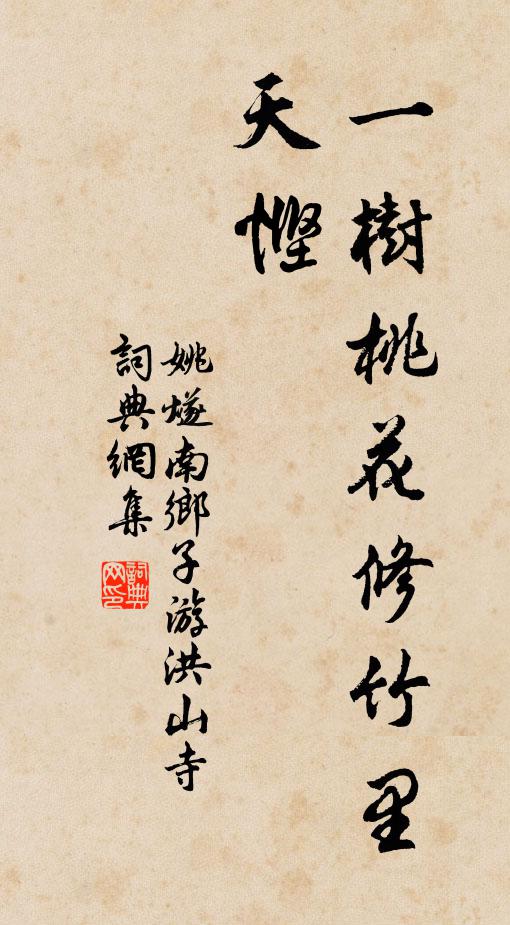 一樹桃花修竹里
天慳
姚燧南鄉子游洪山寺
詞典網集
詞典
网印